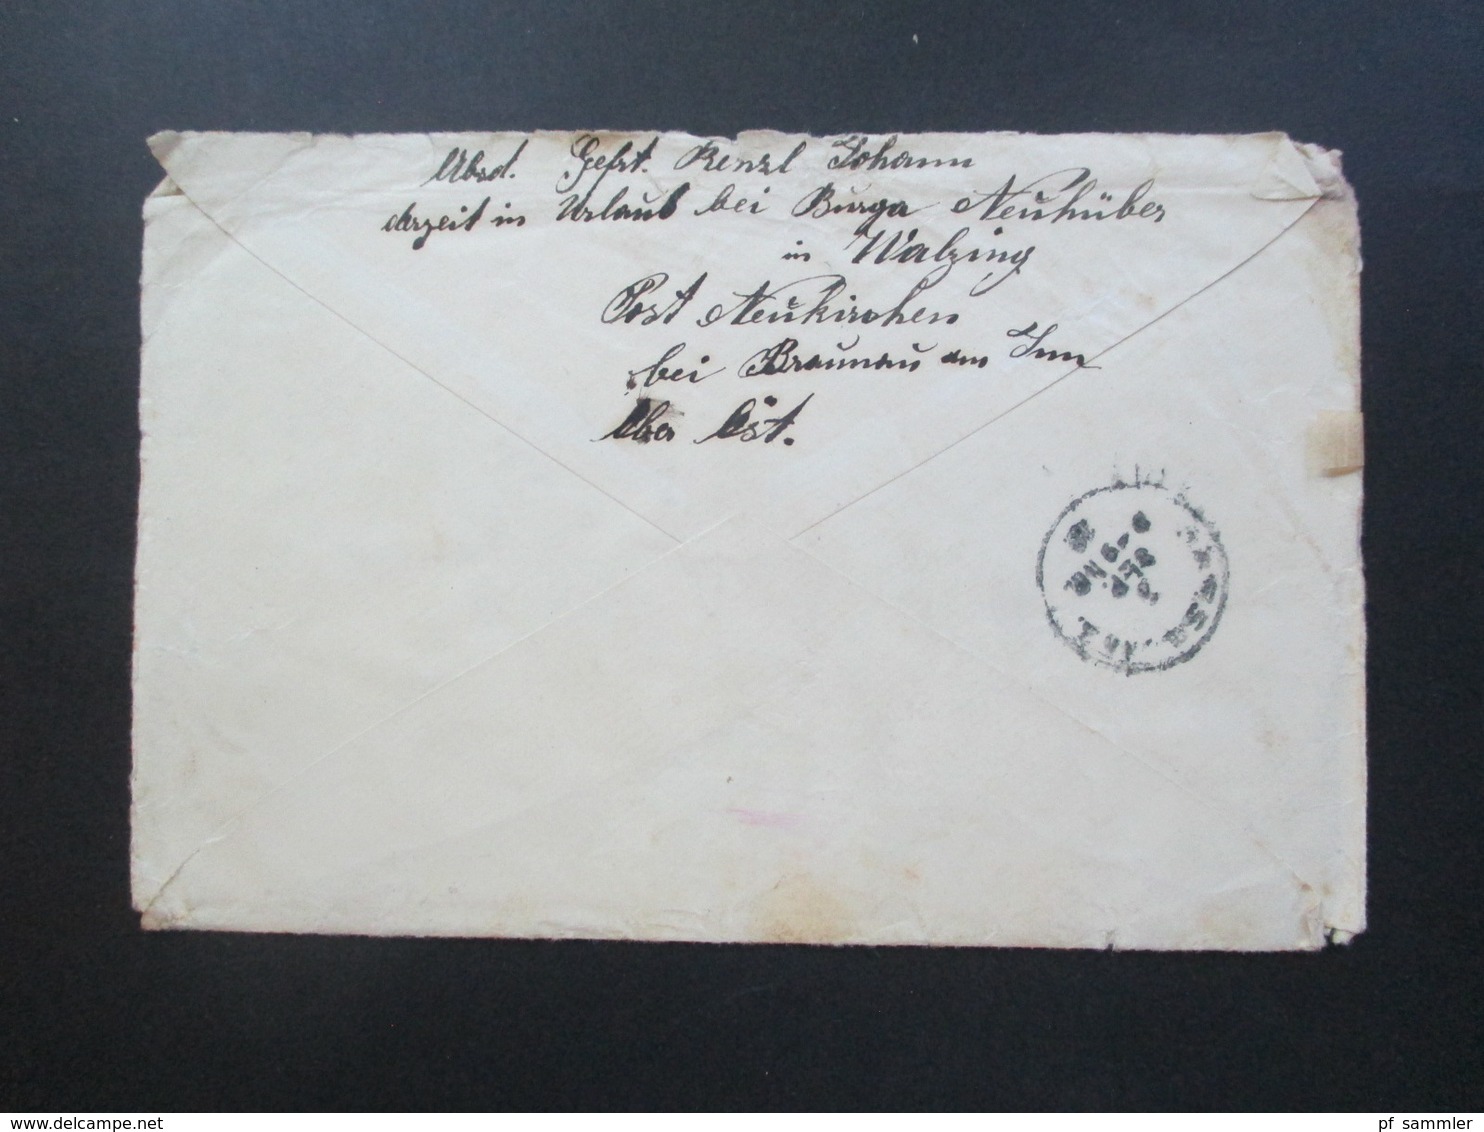 Absd. Gefrt. Renzl Johann
derzeit in Urlaub bei Burga Neuhüber
in Walzing
Post Neukirchen
bei Braunau am Inn
Ober Öst.
pf_sammler